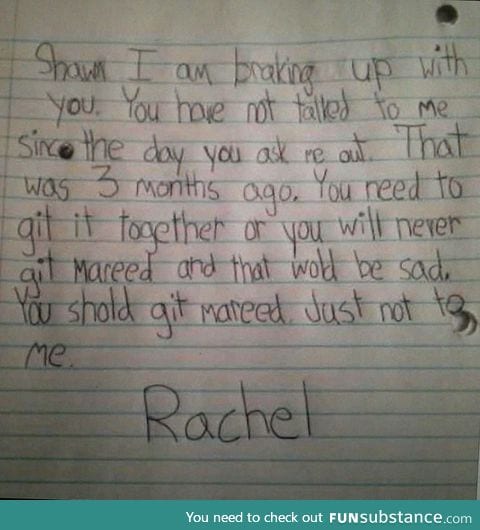 Shawn I am braking up with
you. You have not talked to me
since the day you ask me out. That
was 3 months ago. You need to
git it together or you will never
git mareed and that wold be sad.
You shold git mareed. Just not to
me.
Rachel
You need to check out FUNsubstance.com